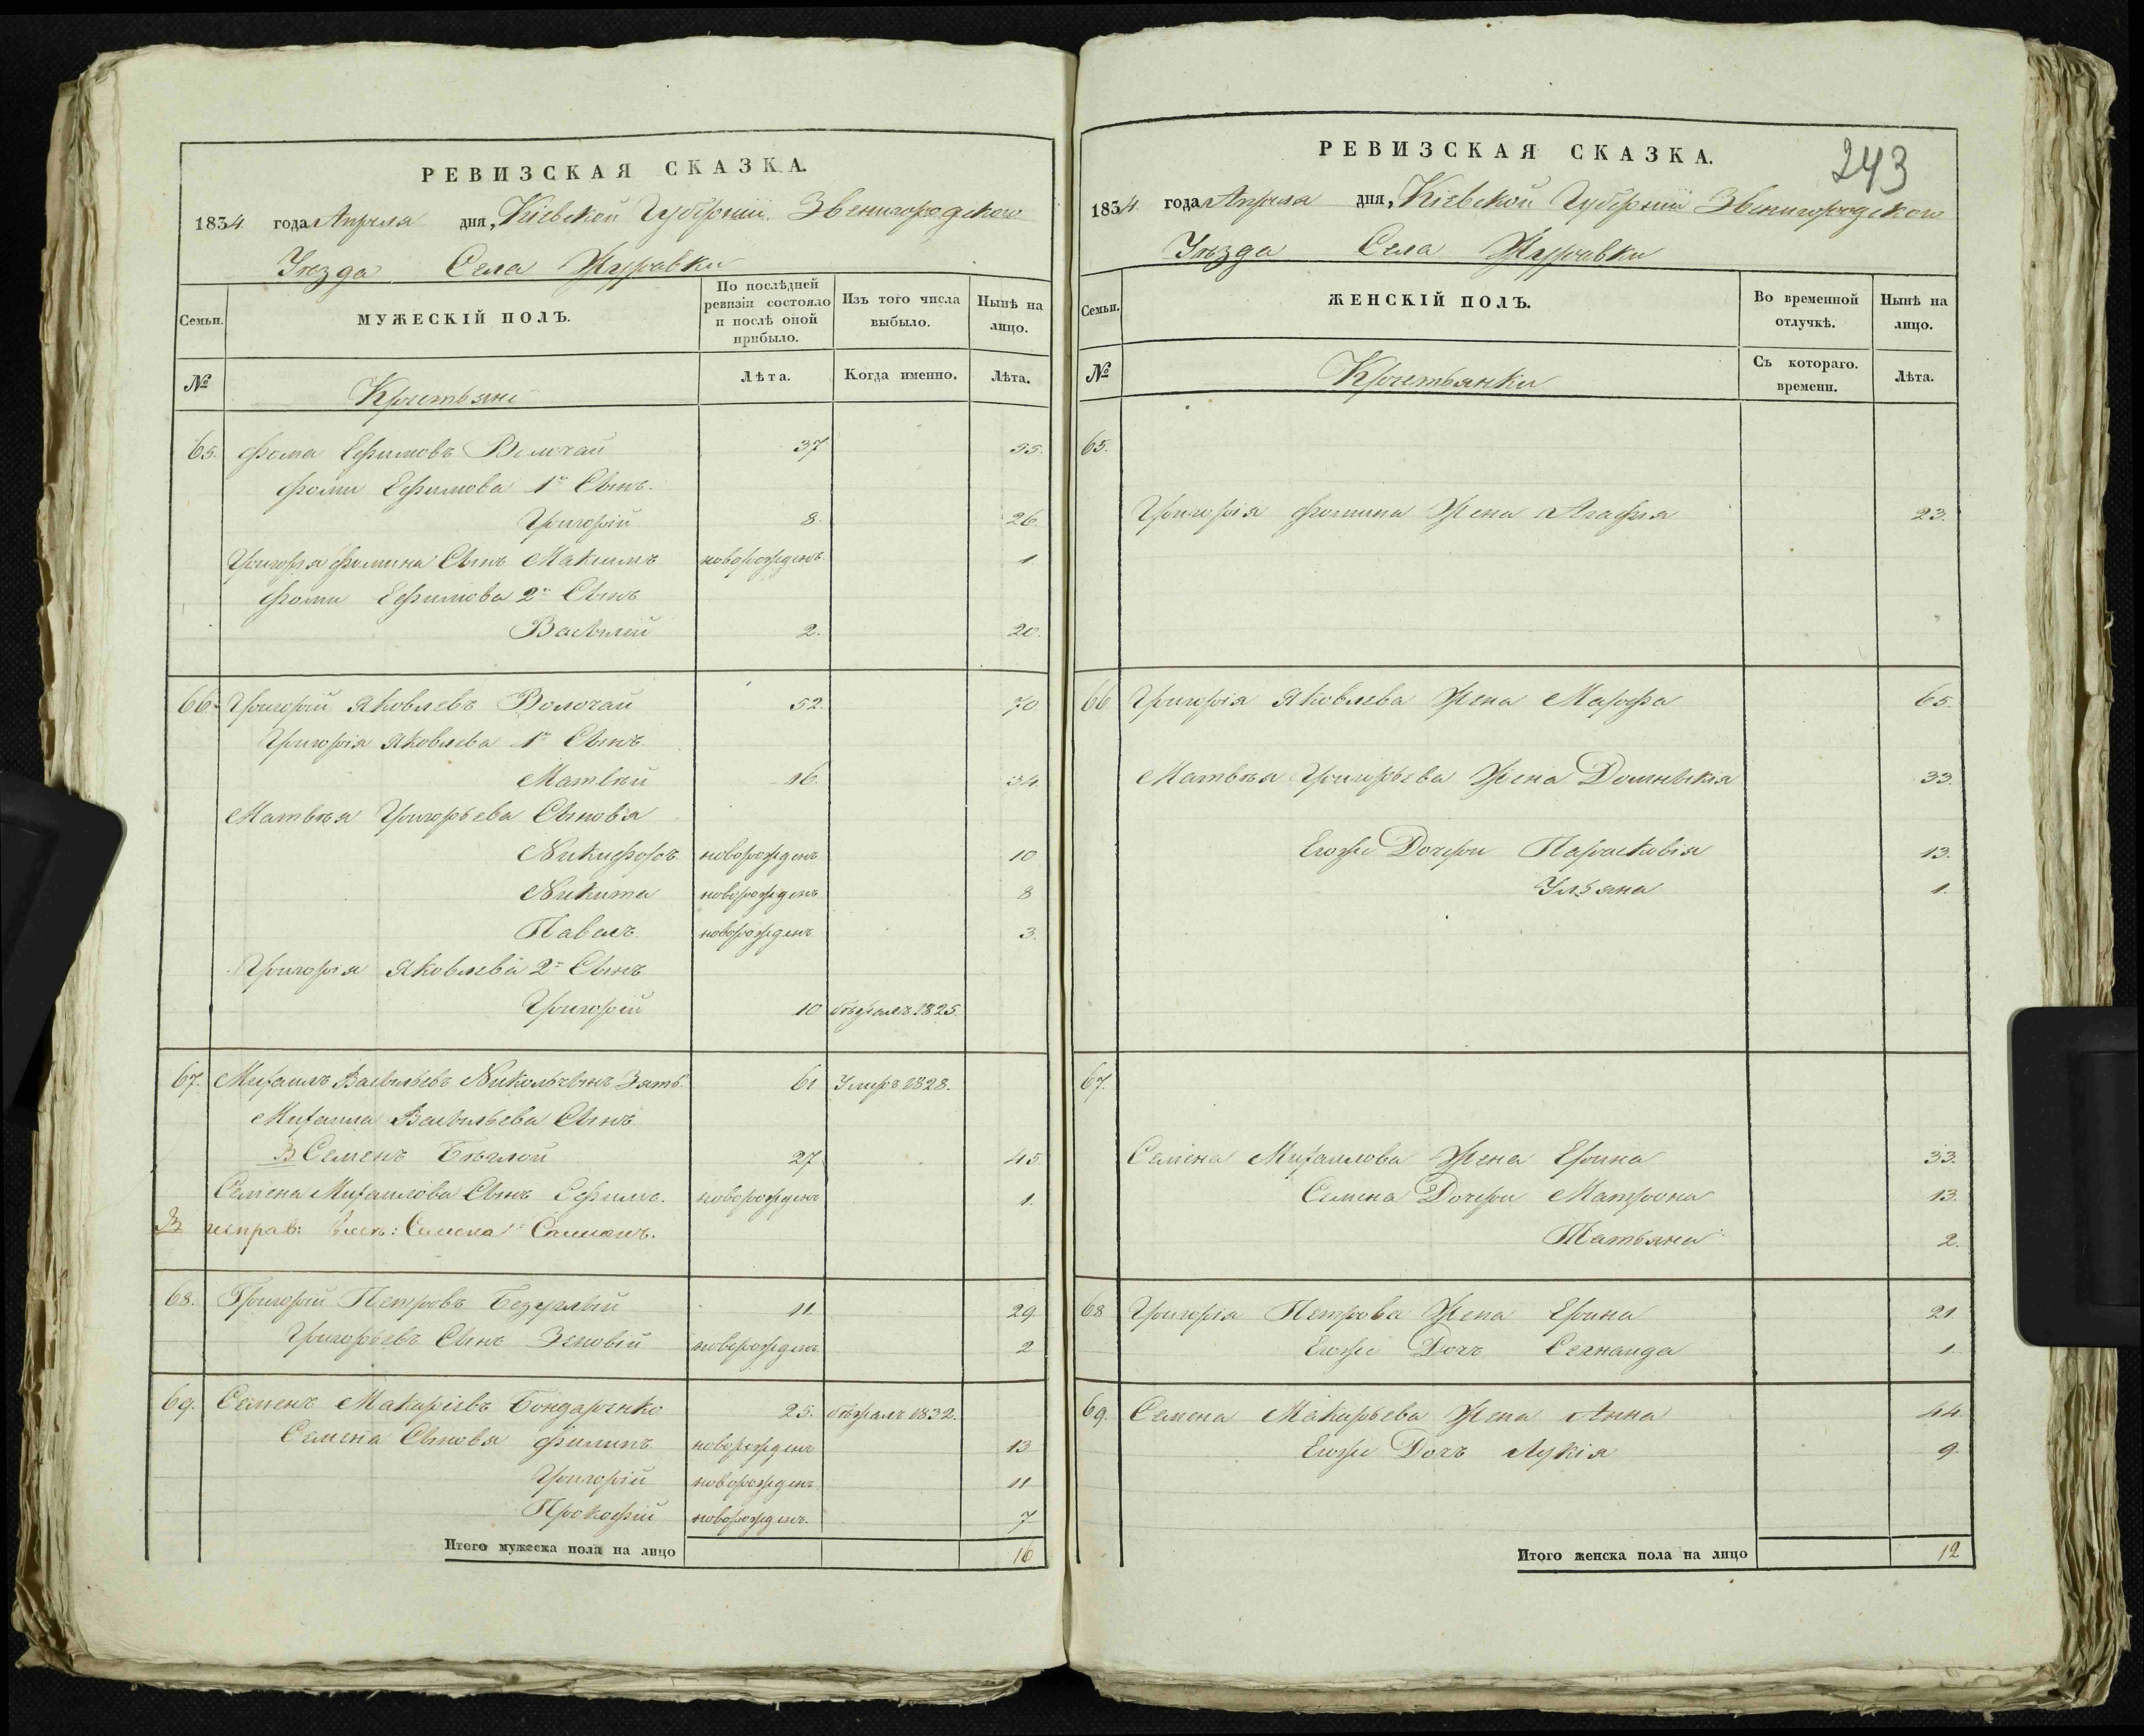 РЕВИЗСКАЯ СКАЗКА.
1834 года Апреля дня, Кіевской Губерніи Звенигородского
Уезда Села Журавки
Семьи.
МУЖЕСКІЙ ПОЛЪ.
По послѣдней ревизіи состояло и послѣ оной прибыло.
Изъ того числа выбыло.
Нынѣ на лицо.
№
Крестьяне
Лѣта.
Когда именно.
Лѣта.
65. Фома Ефимовъ Волочай 37 55.
Фомы Ефимова 1й Сынъ.
Григорій 8. 26
Григорія Фомина Сынъ Максимъ новорожденъ 1
Фомы Ефимова 2й Сынъ
Василій 2. 20.
66. Григорій Яковлевъ Волочай 52. 70
Григорія Яковлева 1й Сынъ.
Матвѣй 16 34.
Матвѣя Григорьева Сыновья
Никифоръ новорожденъ 10
Никита новорожденъ 8
Павелъ новорожденъ 3.
Григорія Яковлева 2й Сынъ
Григорій 10 бѣжалъ 1825.
67. Михаилъ Васильевъ Зять 61 Умеръ 1828.
Михаила Васильева Сынъ
В Семенъ Бѣглой 27 45
Семена Михаилова Сынъ Ефимъ. новорожденъ 1.
В исправ: Семена
68. Григорій Петровъ Безуглый 11. 29.
Григорьевъ Сынъ Зеновій новорожденъ 2
69. Семенъ Макаріевъ Бондаренко 25. бѣжалъ 1832.
Семена Сыновя Филипъ новорожденъ 13
Григорій новорожденъ 11
Прокофій новорожденъ. 7
Итого мужеска пола на лицо 16
243
РЕВИЗСКАЯ СКАЗКА.
1834 года Апреля дня, Кіевской Губерніи Звенигородского
Уезда Села Журавки
Семьи.
ЖЕНСКІЙ ПОЛЪ.
Во временной отлучкѣ.
Нынѣ на лицо.
№
Крестьянки
Съ котораго. времени.
Лѣта.
65.
Григорія Фомина Жена Агафія 23.
66 Григорія Яковлева Жена Марфа 65.
Матвѣя Григорьева Жена Домникія 33.
Егоже Дочери Парасковія 13.
Ульяна 1.
67.
Семена Михаилова Жена Ерина 33.
Семена Дочери Матрона 13.
Татьяна 2.
68 Григорія Петрова Жена Ерина 21.
Егоже Дочъ 1.
69. Семена Макарьева Жена Анна 44
Егоже Дочъ Лукія 9.
Итого женска пола на лицо 12